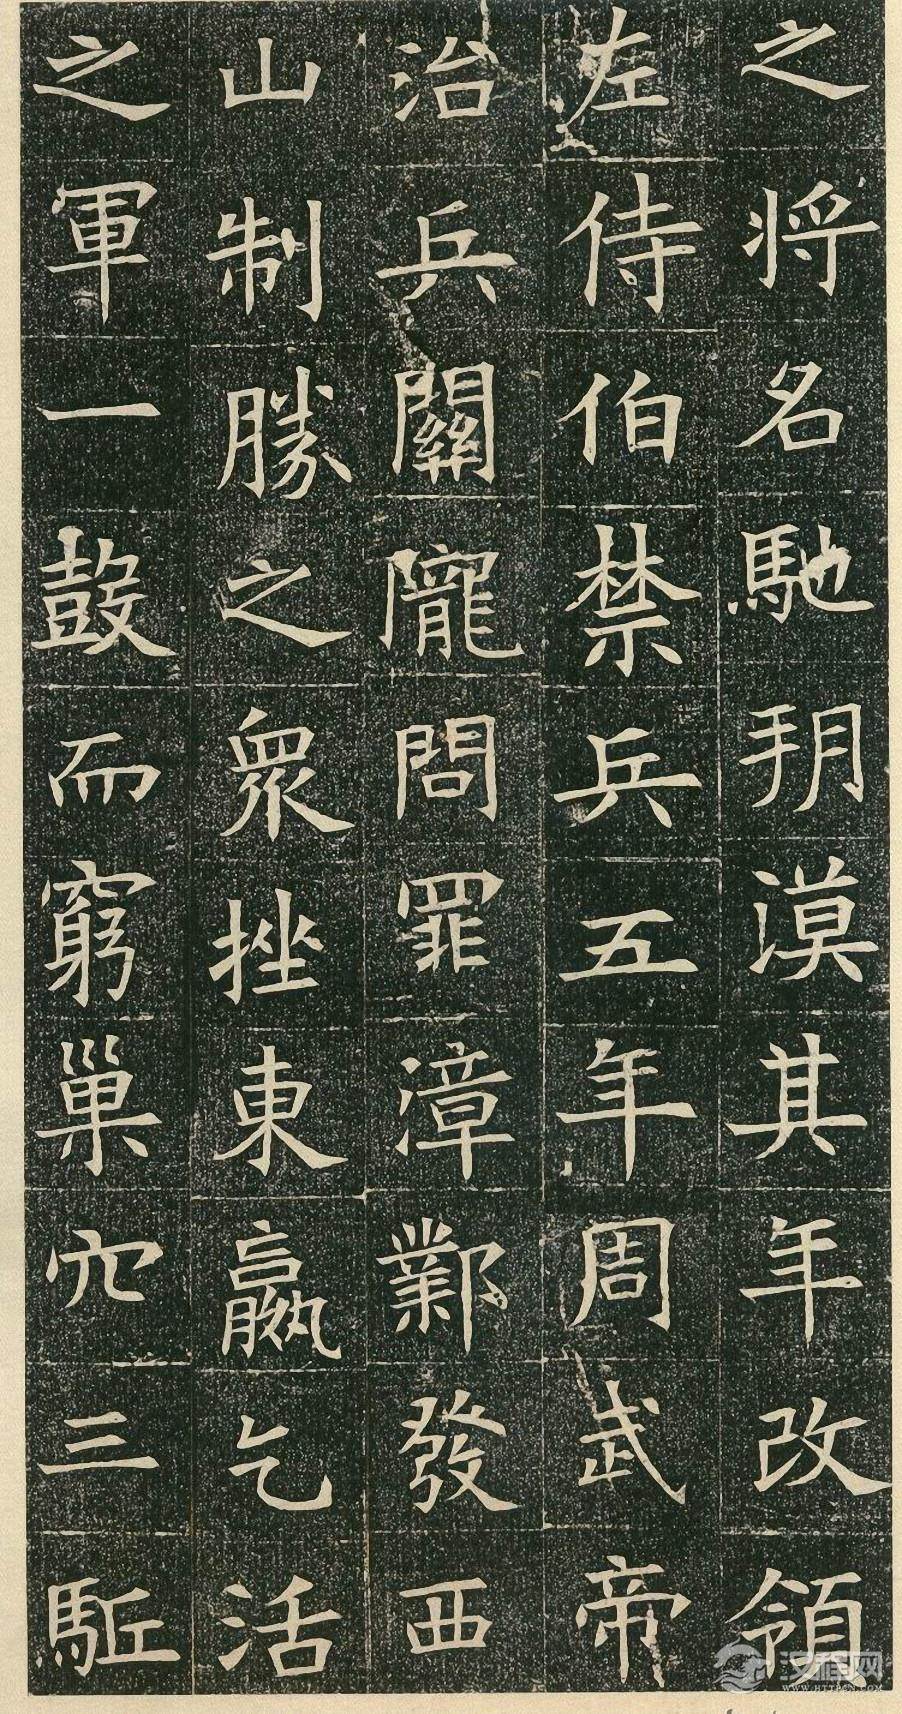 之将名馳玥漠其年改領
左侍伯禁兵五年周武帝
治兵關隴問罪漳鄴發西
山制勝之衆挫東嬴乞活
之軍一鼓而窮巢穴三駈
汉程网
WWW.HTTPCN.COM